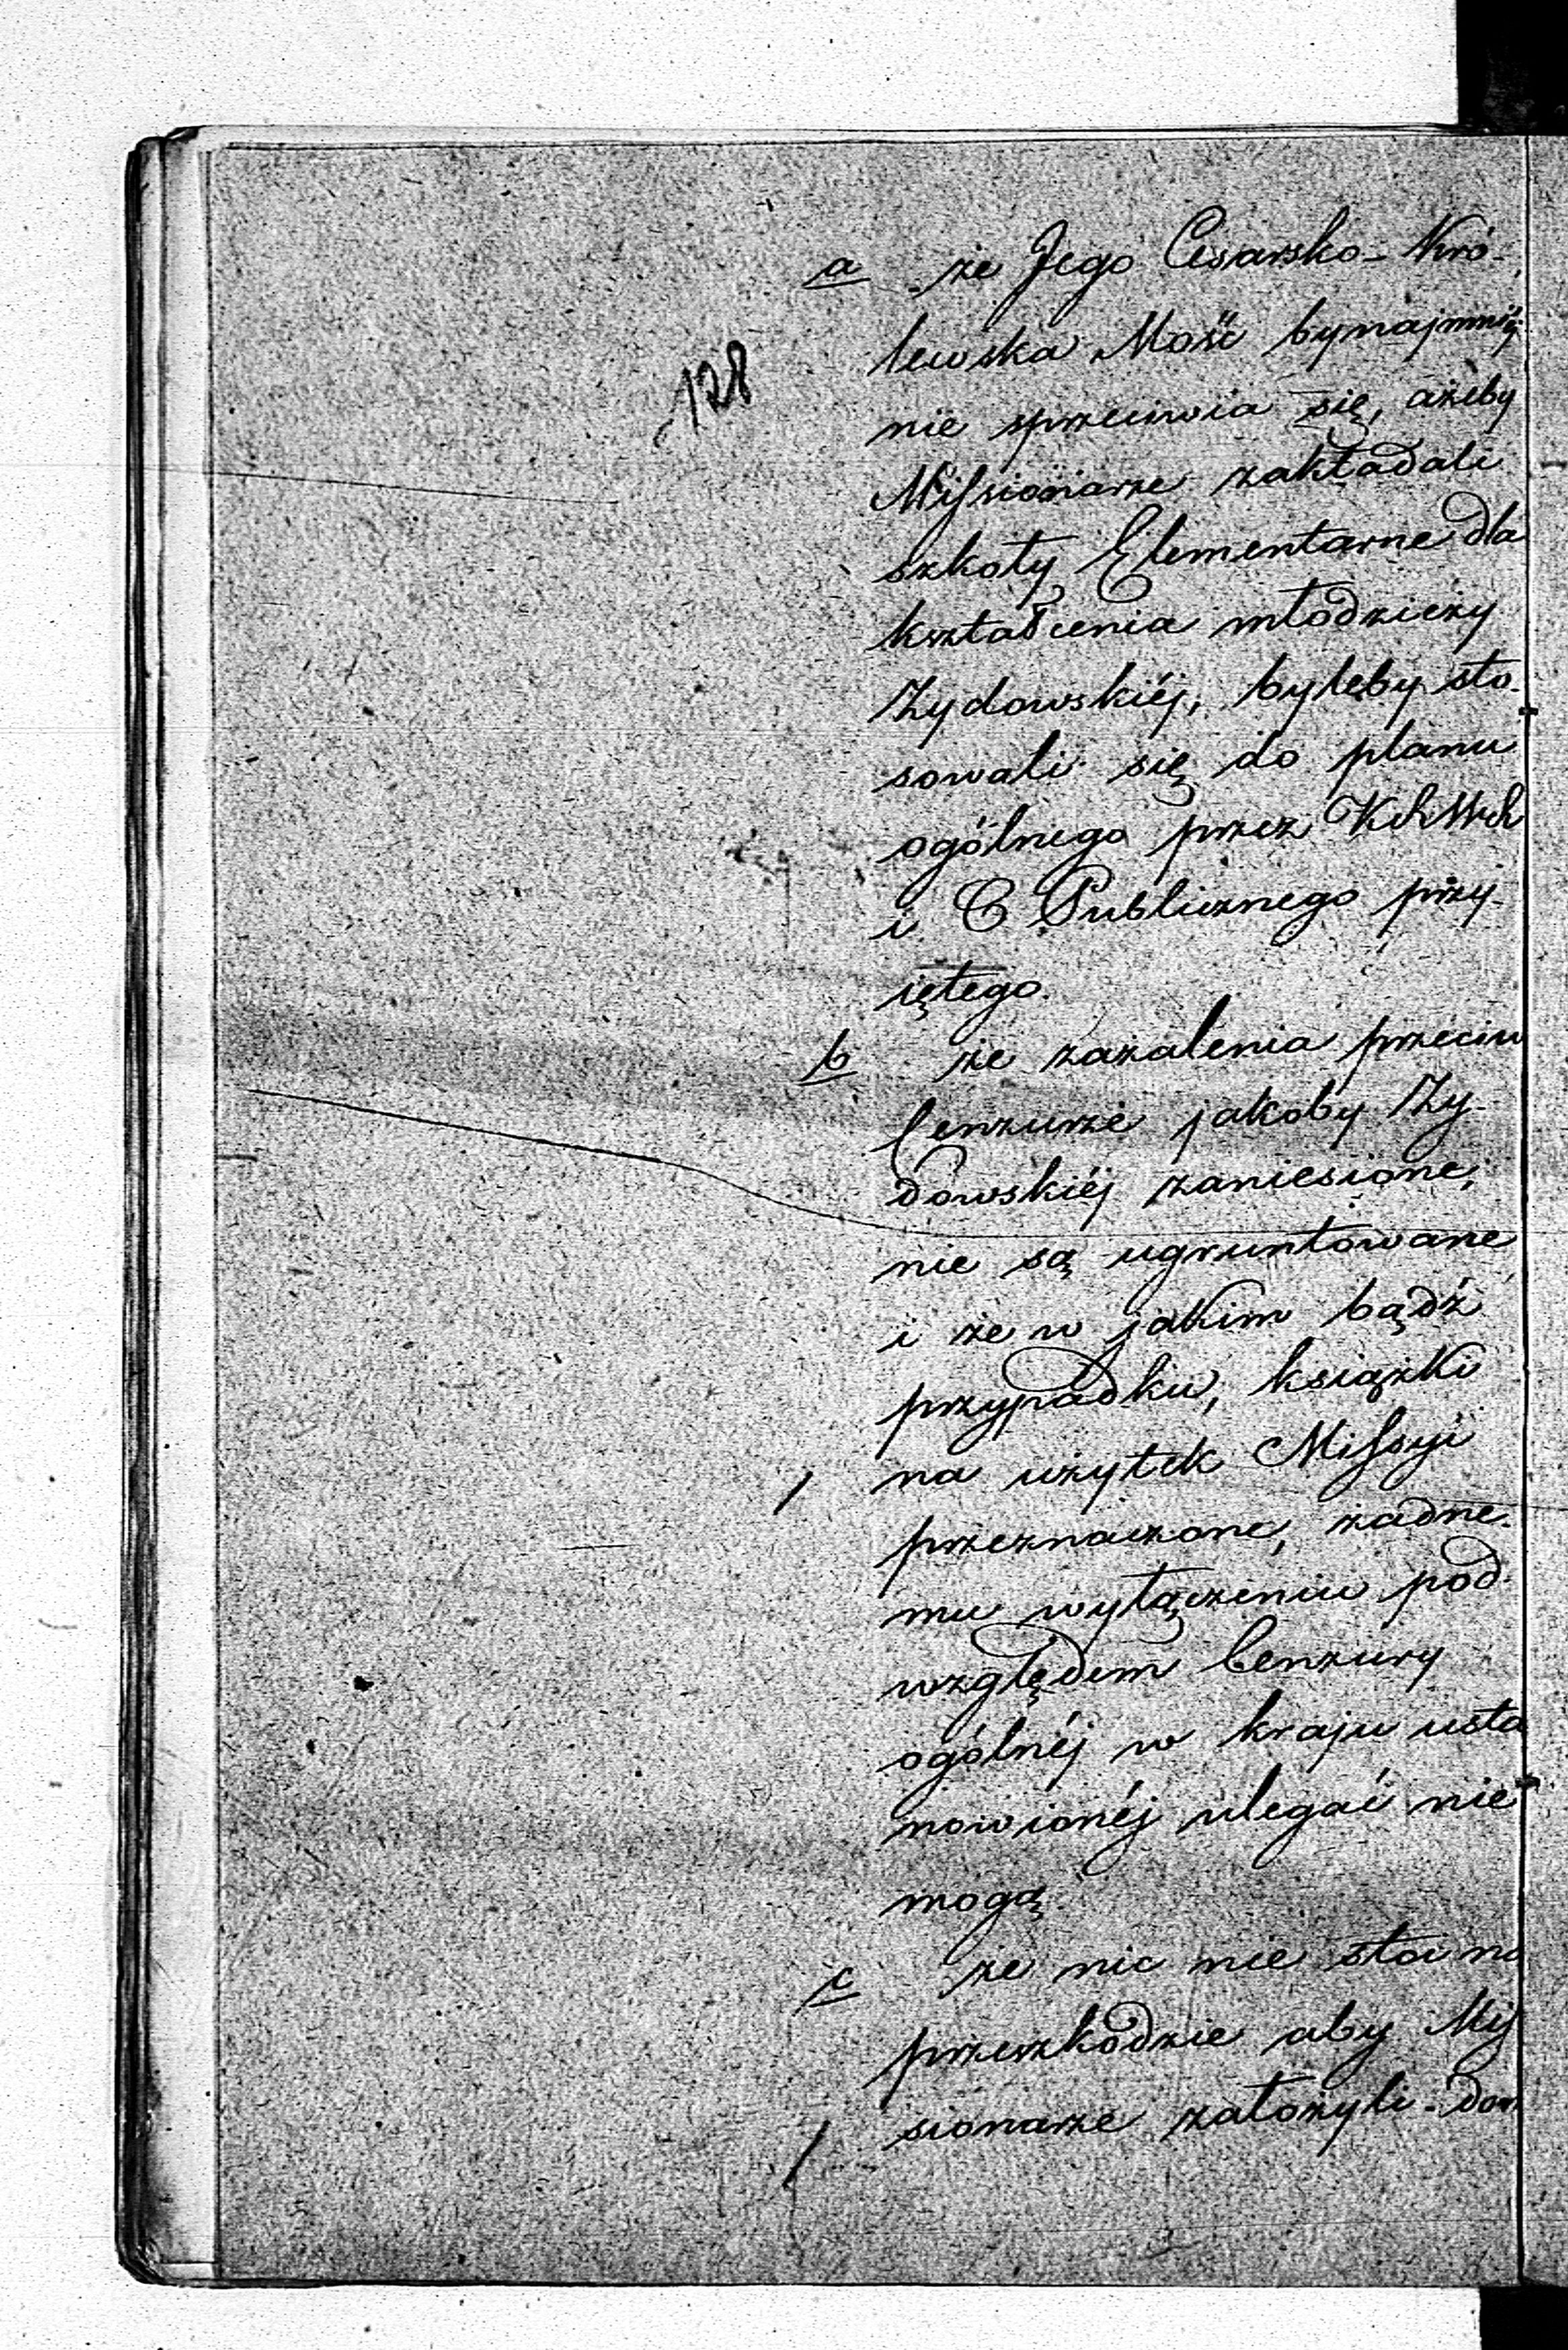 a że Jego Cesarsko-Kró-
lewska Mość bynajmniéj
128
nie sprzeciwia się, ażeby
Missionarze zakładali
szkoły Elementarne dla
kształcenia młodzieży
Żydowskiéj, byleby sto-
sowali się do planu
ogólnego przez
i O Publicznego przy-
iętego.
b że zażalenia przeciw
Cenzurze jakoby Ży-
dowskiéj zaniesione,
nie są ugruntowane
i że w jakim bądź
przypadku, książki
na użytek Missyi
przeznaczone, żadne-
mu wyłączeniu pod
względem Cenzury
ogólnéj w kraju usta
nowionéj ulegać nie
mogą.
c że nic nie stoi na
przeszkodzie aby Mis
sionarze założyli dom